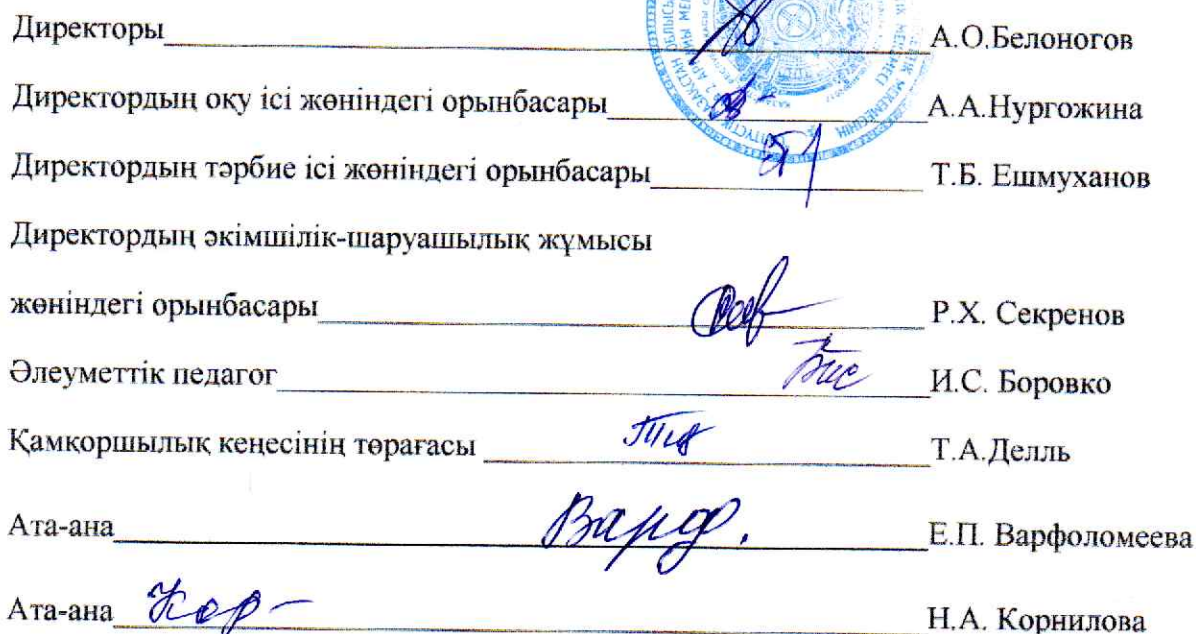 Директоры А.О.Белоногов
Директордың оқу ісі жөніндегі орынбасары А.А.Нургожина
Директордың тәрбие ісі жөніндегі орынбасары Т.Б. Ешмуханов
Директордың әкімшілік-шаруашылық жұмысы
жөніндегі орынбасары Р.Х. Секренов
Әлеуметтік педагог И.С. Боровко
Қамқоршылық кеңесінің төрағасы Т.А.Делль
Ата-ана Варф. Е.П. Варфоломеева
Ата-ана Кор Н.А. Корнилова